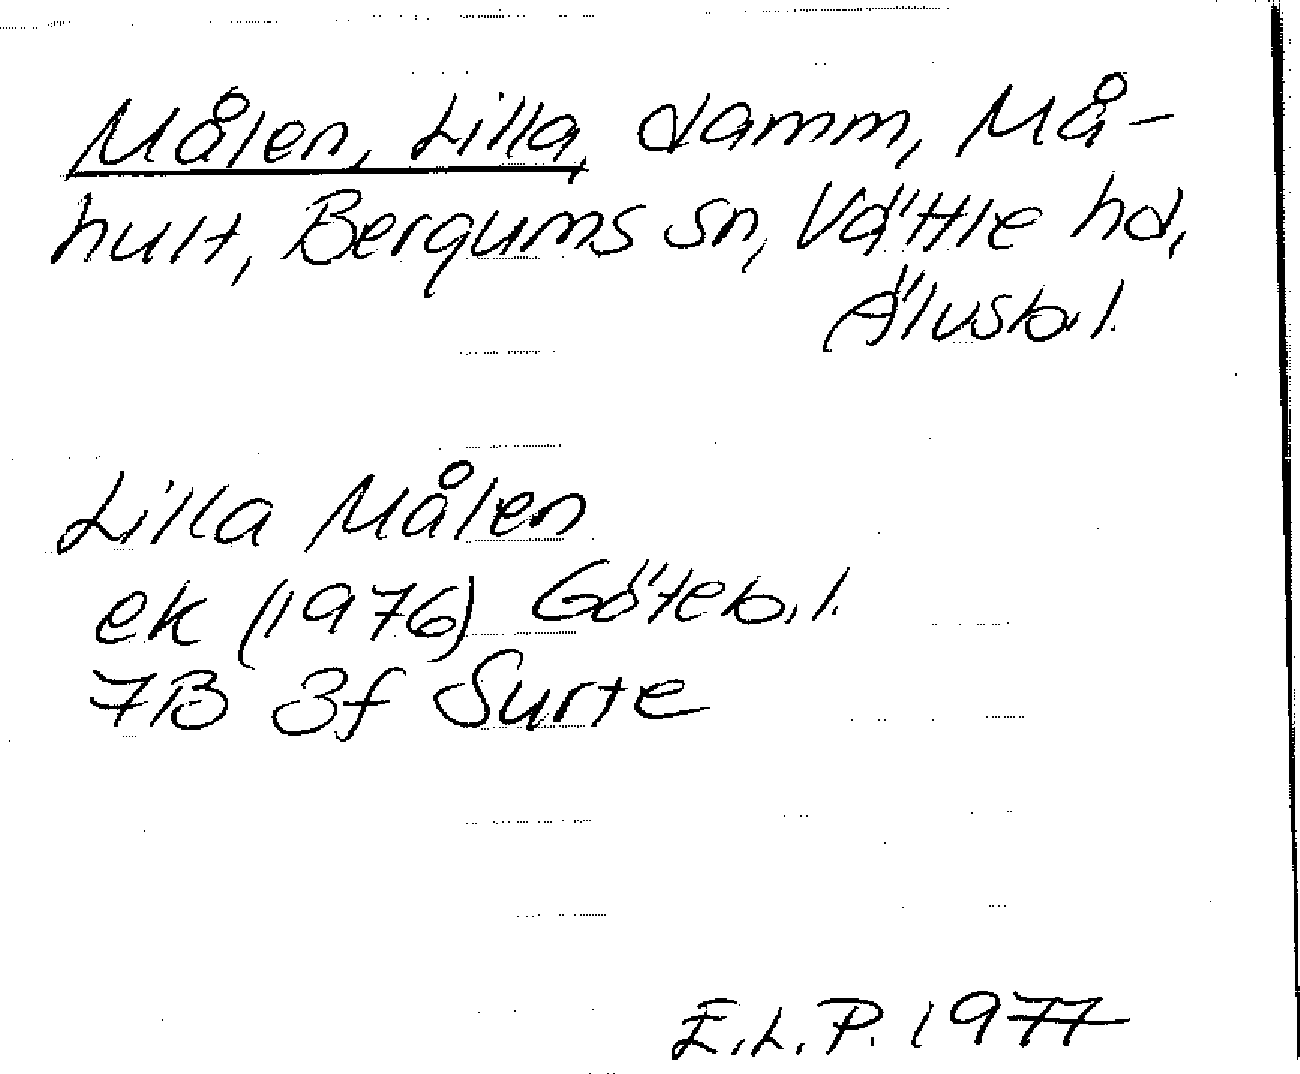 Målen, Lilla, damm, Må-
hult, Bergums sn, Vättle hd,
Älvsb.l.
Lilla Målen
ek (1976) Göteb.l.
7B 3f Surte
E.L.P. 1977